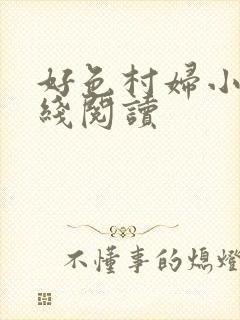 好色村婦小
綫閱讀
不懂事的熄燈